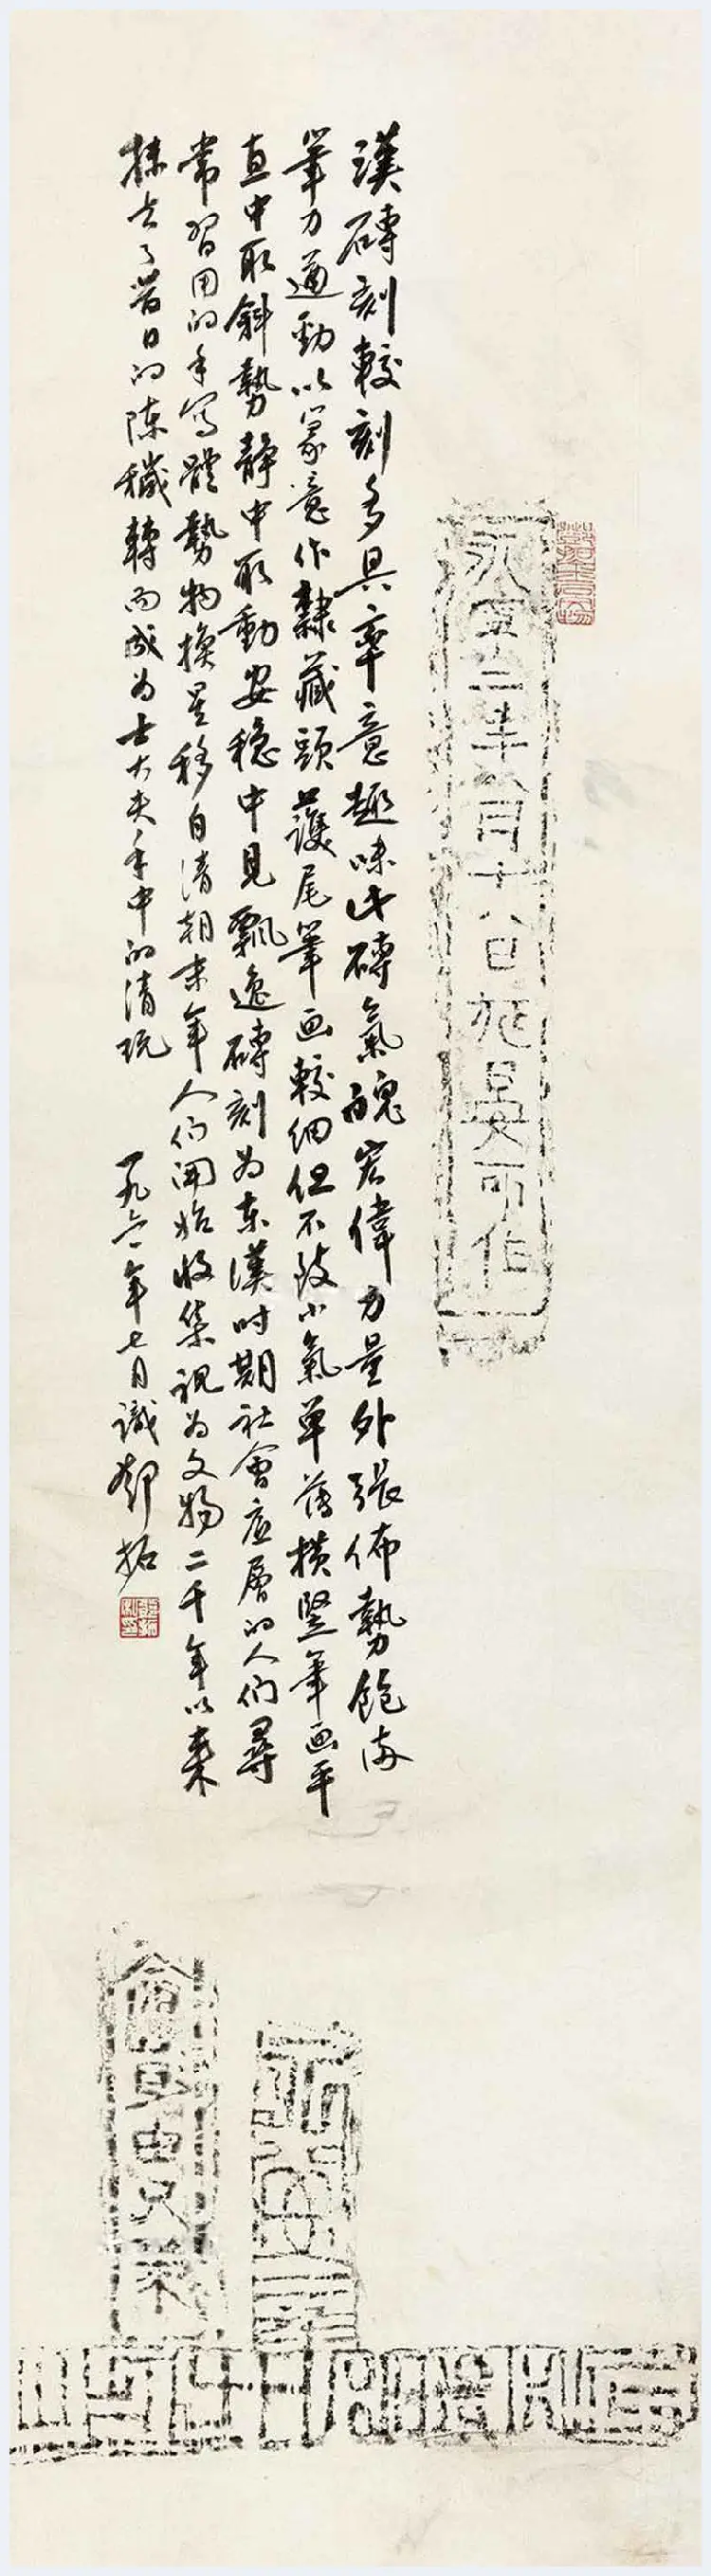 永寧二年八月十八日施晏所作
漢磚刻較刻多具率意趣味此磚氣魄宏偉力量外張佈勢飽滿
筆力遒勁以篆意作隸藏頭護尾筆画較細但不致小氣單薄橫竪筆画平
直中取斜勢靜中取動安穩中見飄逸磚刻为东漢时期社會底層的人們尋
常習用的手写體勢物換星移自清朝末年人们開始收集視为文物二千年以來
抹去了昔日的陈穢轉而成为士大夫手中的清玩
一九六一年七月識鄧拓